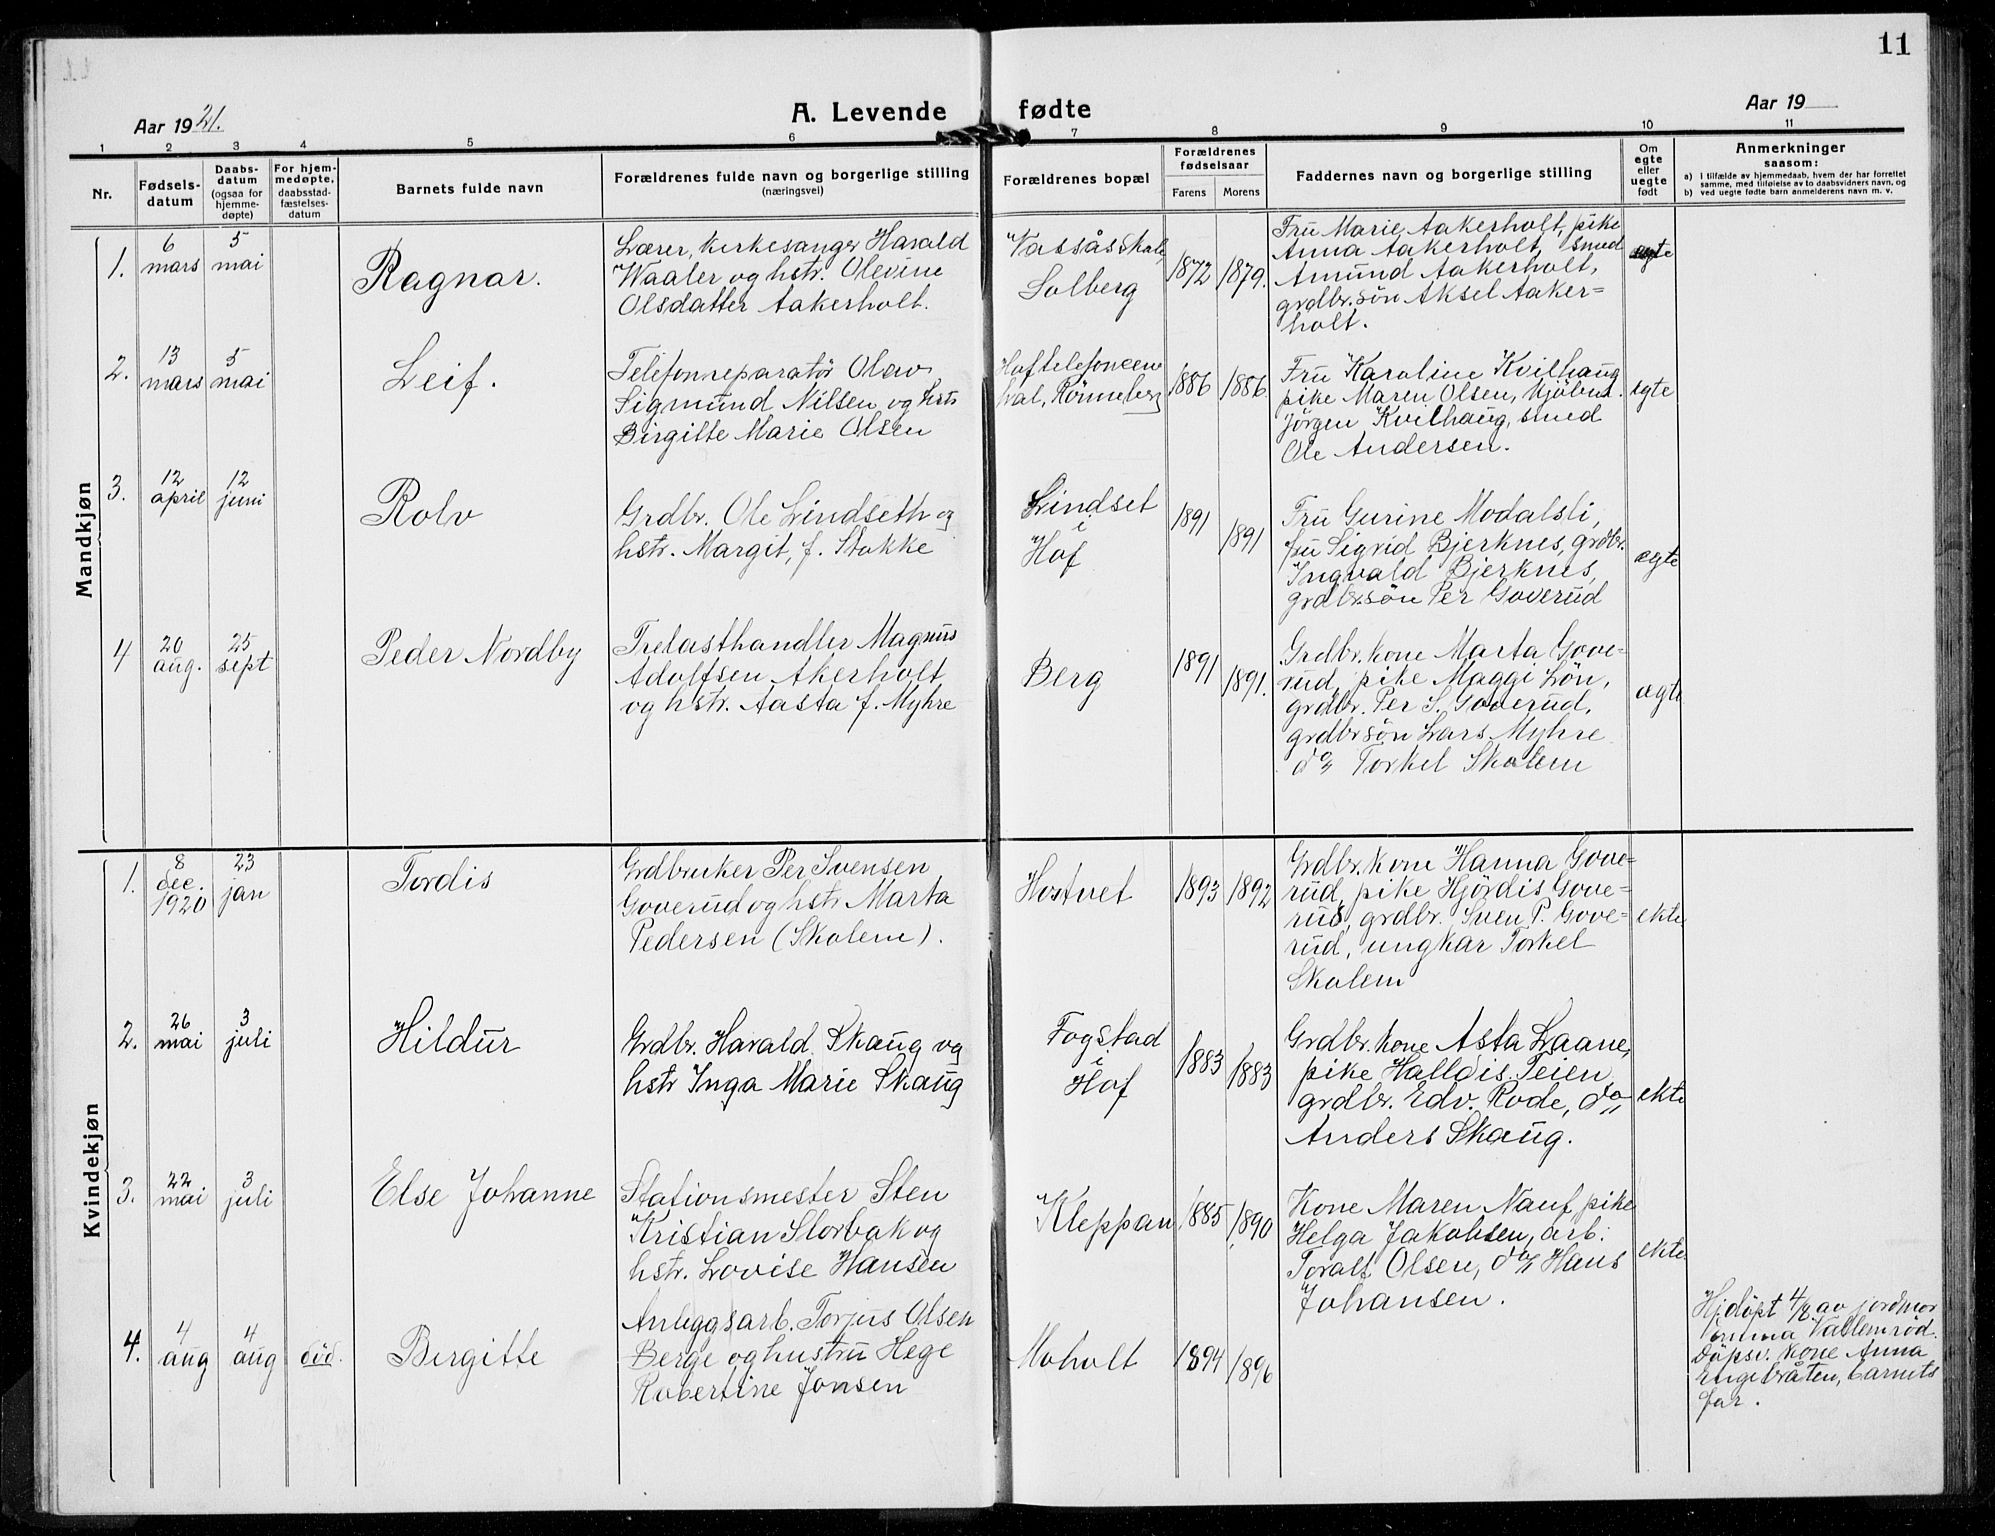 11
Aar 1921.
A. Levende fødte
Aar 19
1 2 3 4 5 6 7 8 9 10 11
Nr.
Fødsels-
datum
Daabs-
datum
(ogsaa for
hjemme-
døpte)
For hjem-
medøpte,
daabsstad-
fæstelses-
datum
Barnets fulde navn
Forældrenes fulde navn og borgerlige stilling
(næringsvei)
Forældrenes bopæl
Forældrenes
fødselsaar
Farens Morens
Faddernes navn og borgerlige stilling
Om
egte
eller
uegte
født
Anmerkninger
saasom:
a) i tilfælde av hjemmedaab, hvem der har forrettet
samme, med tilføielse av to daabsvidners navn, og
b) ved uegte fødte barn anmelderens navn m. v.
Mandkjøn
1.
6
mars
5
mai
Ragnar.
Lærer, kirkesanger Harald
Waaler og hstr. Olevine
Olsdatter Aakerholt.
Vassås skole,
Solberg
1872
1879.
Fru Marie Aakerholt, pike
Anna Aakerholt, smed
Amund Aakerholt,
grdbr.søn Aksel Aaker=
holt.
egte
2.
13
mars
5
mai
Leif.
Telefonreparatør Olav
Sigmund Nilsen og hstr
Birgitte Marie Olsen
Hof telefoncen
tral, Rønneberg
1886
1886.
Fru Karoline Kvilhaug
pike Maren Olsen, kjøbm.
Jørgen Kvilhaug, smed
Ole Andersen.
egte
3.
12
april
12
juni
Rolv
Grdbr. Ole Lindseth og
hstr. Margit, f. Stokke
Lindset
i
Hof
1891
1891
Fru Gurine Modalsli,
fru Sigrid Bjerknes, grdbr.
Ingvald Bjerknes,
grdbrsøn Per Goverud
egte
4
20
aug.
25
sept
Peder Nordby
Trelasthandler Magnus
Adolfsen Akerholt
og hstr. Aasta f. Myhre
Berg
1891
1891.
Grdbr.kone Marta Gove=
rud, pike Maggi Løn,
grdbr. Per S. Goverud,
grdbrsøn Lars Myhre
do Torkel Skolem
egte
Kvindekjøn
1.
8
dec.
1920
23
jan
Tordis
Grdbruker Per Svensen
Goverud og hstr Marta
Pedersen (Skolem).
Hostvet
1893
1892
Grdbr.kone Hanna Gove=
rud, pike Hjørdis Gove=
rud, grdbr. Sven P. Gove=
rud, ungkar Torkel
Skolem
ekte
2.
26
mai
3
juli
Hildur
Grdbr. Harald Skaug og
hstr Inga Marie Skaug
Fogstad
i
Hof
1883
1883
Grdbr.kone Asta Laane,
pike Halldis Teien
grdbr. Edv. Rode, do
Anders Skaug.
ekte
3.
22
mai
3
juli
Else Johanne
Stationsmester Sten
Kristian Storbak og
hstr. Lovise Hansen
Kleppan
1885
1890
Kone Maren Nauf pike
Helga Jakobsen, arb.
Toralf Olsen, do Hans
Johansen.
ekte
4.
4
aug
4
aug
død.
Birgitte
Anleggsarb. Torjus Olsen
Berge og hustru Hege
Robertine Jonsen
Moholt
1894
1896
Hjdøpt 4/8 av jordmor
Emma Vallemrød.
Døpsv. kone Anna
Engebråten, barnets
far.